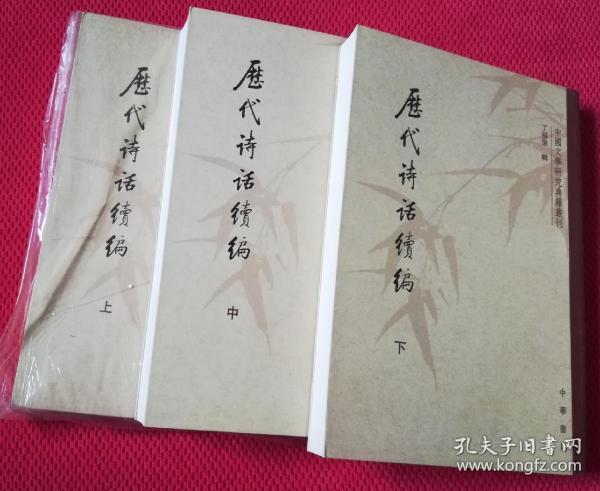 歷代诗话續编
上
歷代诗话續编
中
歷代诗话續编
下
中國文學研究典籍叢刊
丁福保 輯
中華書
孔夫子旧书网
www.kongfz.com